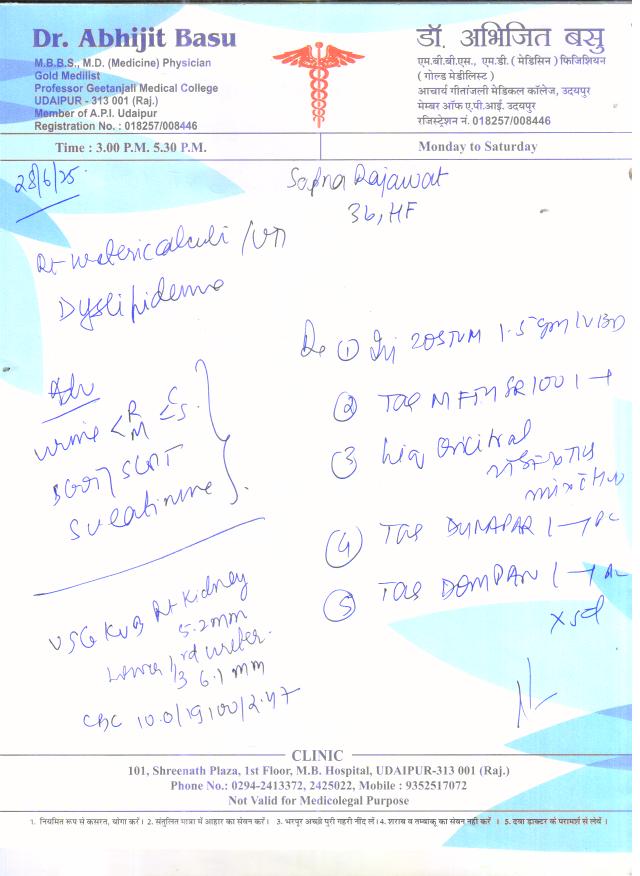 Dr. Abhijit Basu
M.B.B.S., M.D. (Medicine) Physician
Gold Medilist
Professor Geetanjali Medical College
UDAIPUR - 313 001 (Raj.)
Member of A.P.I. Udaipur
Registration No. : 018257/008446
डॉ. अभिजित बसु
एम.बी.बी.एस., एम.डी. ( मेडिसिन ) फिजिशियन
( गोल्ड मेडीलिस्ट )
आचार्य गीतांजली मेडिकल कॉलेज, उदयपुर
मेम्बर ऑफ ए.पी.आई. उदयपुर
रजिस्ट्रेशन नं. 018257/008446
Time : 3.00 P.M. 5.30 P.M.
Monday to Saturday
28/6/25.
Sapna Rajawat
36, HF
Rt uretericcalculi /UTI
Dyslipidemia
Adv
urine < R M < C S.
SGOT/ SGPT
S creatinine
USG KUB Rt Kidney
5.2mm
Lower 1/3 rd ureter.
6.1 mm
CBC 10.0/19100/2.47
① Inj ZOSTUM 1.5 gm IV BD
② TAB MFTH SR 100 1 →
③ Liq Oricitral
④ TAB DUNAPAR 1 → PC
⑤ TAB DOMPAN 1 →
x 5d
CLINIC
101, Shreenath Plaza, 1st Floor, M.B. Hospital, UDAIPUR-313 001 (Raj.)
Phone No.: 0294-2413372, 2425022, Mobile : 9352517072
Not Valid for Medicolegal Purpose
1. नियमित रूप से कसरत, योगा करें। 2. संतुलित मात्रा में आहार का सेवन करें। 3. भरपूर अच्छी पुरी गहरी नींद लें। 4. शराब व तम्बाकू का सेवन नही करें । 5. दवा डाक्टर के परामर्श से लेवें ।